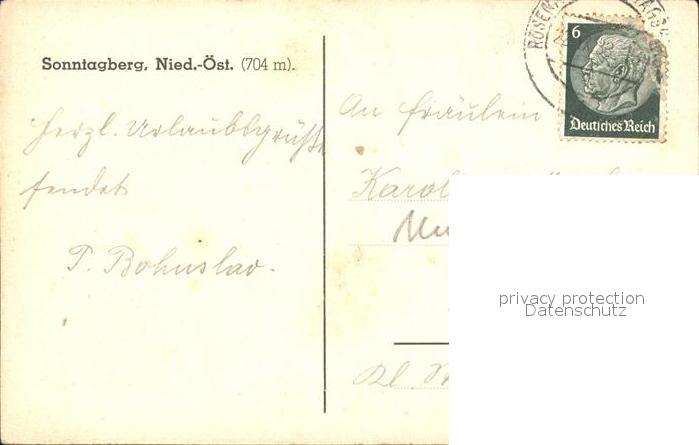 Sonntagberg, Nied.-Öst. (704 m).
herzl. Urlaubsgrüße
sendet
P. Bohuslav.
An Fräulein
6
Deutsches Reich
privacy protection
Datenschutz